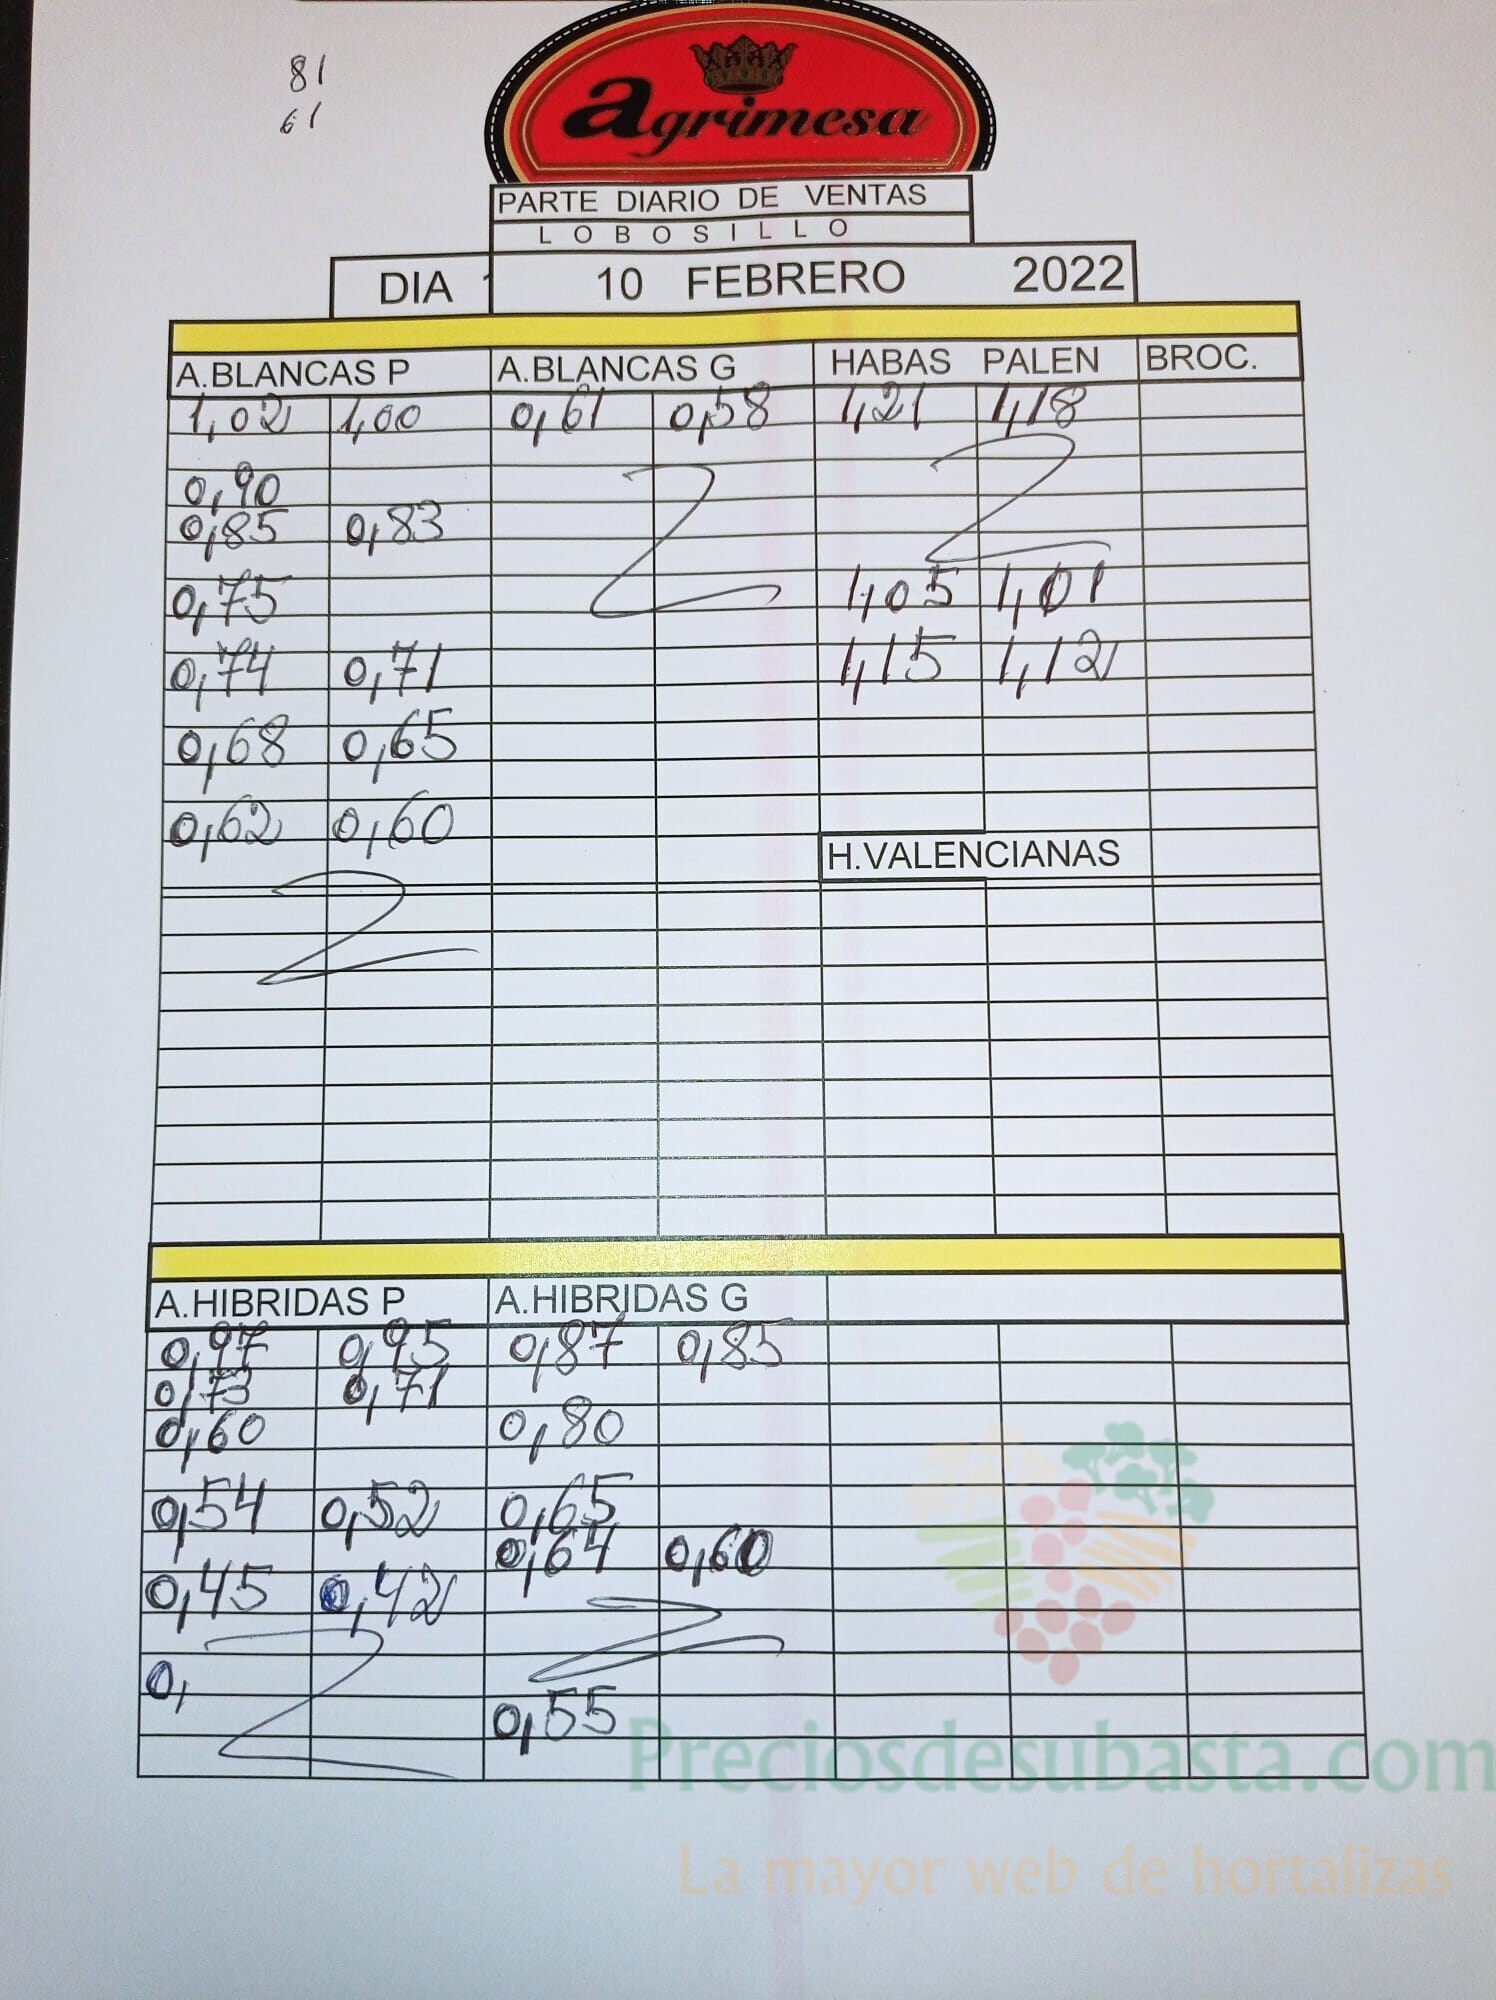 81
61
agrimesa
PARTE DIARIO DE VENTAS
LOBOSILLO
DIA 10 FEBRERO 2022
A.BLANCAS P A.BLANCAS G HABAS PALEN BROC.
1,02 1,00 0,61 0,58 1,21 1,18
0,90
0,85 0,83
0,75 1,05 1,01
0,74 0,71 1,15 1,12
0,68 0,65
0,62 0,60
H.VALENCIANAS
A.HIBRIDAS P A.HIBRIDAS G
0,97 0,95 0,87 0,85
0,73 0,71
0,60 0,80
0,54 0,52 0,65
0,64 0,60
0,45 0,42
0,
0,55
Preciosdesubasta.com
La mayor web de hortalizas